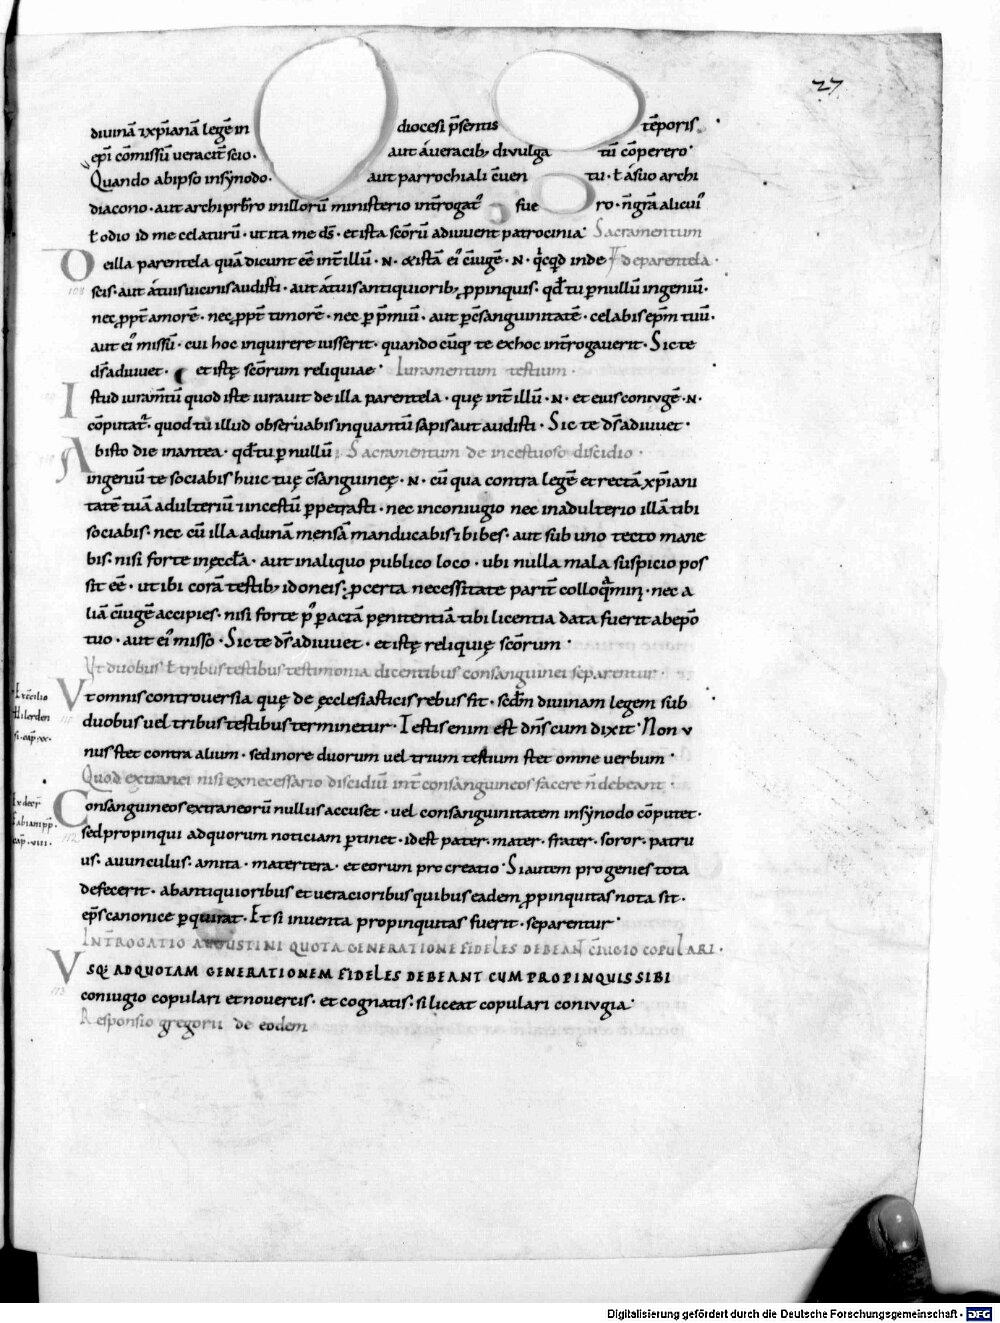 27
diuinā ı xp̄ianā legē in diocesi p̄sentis tēporis
ep̄i cōmissū ueracit̄ scio · aut áueracib; diuulga tū cōperero ·
Quando ab ipso in sẏnodo · aut parrochiali c̄uen tu · ƚ ásuo archi
diacono · aut archiprb̄ro in illorū ministerio int̄rogat᷒ fue ro · n̄ gr̄a alicui᷒
ƚ odio id me celaturū · ut ita me ds̄ · et ista sc̄orū adiuuent patrocinia · Sacramentum
De illa parentela quā dicunt eē int̄ illū · N · & istā ei᷒ c̄iugē · N · qͥcqd̄ inde de parentela ·
108
scis · aut átuis uicinis audisti · aut átuis antiquiorib; ꝓpinquis · qd̄ tu ꝑ nullū ingeniū ·
nec ꝓpt̄ amorē · nec ꝓpt̄ timorē · nec ꝑ p̄miū · aut ꝑ c̄sanguinitatē · celabis ep̄m tuū ·
aut ei᷒ missū · cui hoc inquirere iusserit · quando cūq; te ex hoc int̄rogauerit · Sic te
ds̄ adiuuet · et istę sc̄orum reliquiae · Iuramentum testium ·
Istud iuram̄tū quod iste iurauit de illa parentela · quę int̄ illū · N · et eius coniugē · N ·
cōputat᷒ · quod tū illud obseruabis inquantū sapis aut audisti · Sic te ds̄ adiuuet ·
Ab isto die inantea · qd̄ tu ꝑ nullū Sacramentum de incestuoso discidio ·
ingeniū te sociabis huic tuę c̄sanguineę · N · cū qua contra legē et rectā xp̄iani
tatē tuā adulteriū ı incestū ꝑpetrasti · nec in coniugio nec in adulterio illā tibi
sociabis · nec cū illa ad unā mensā manducabis ı bibes · aut sub uno tecto mane
bis · nisi forte in ęccƚa · aut in aliquo publico loco · ubi nulla mala suspicio pos
sit eē · ut ibi corā testib; idoneis · ꝓ certa necessitate parit̄ colloqͣmini · nec a
liā c̄iugē accipies · nisi forte p᷒ ꝑactā pęnitentiā tibi licentia data fuerit ab ep̄o
tuo · aut ei᷒ misso · Sic te ds̄ adiuuet · et istę reliquię sc̄orum ·
Vt duobus ƚ tribus testibus testimonia dicentibus consanguinei separentur ·
Ex c̄cilio
Hilerden
si · cap̄ · xx ·
Vt omnis controuersia quę de ęcclesiasticis rebus fit · scd̄m diuinam legem sub
duobus uel tribus testibus terminetur · Testis enim est dn̄s cum dixit · Non v
nus stet contra alium · sed in ore duorum uel trium testium stet omne uerbum ·
Quod extranei nisi ex necessario discidiū int̄ consanguineos facere n̄ debeant ·
Ex decr̄
Fabiani pp̄ ·
cap̄ · viii ·
112
Consanguineos extraneorū nullus accuset · uel consanguinitatem in sẏnodo cōputet ·
sed propinqui ad quorum noticiam ꝑtinet · id est pater · mater · frater · soror · patru
us · auunculus · amita · matertera · et eorum procreatio · Si autem progenies tota
defecerit · ab antiquioribus et ueracioribus quibus eadem ꝓpinquitas nota sit ·
ep̄s canonice ꝑquirat · Et si inuenta propinquitas fuerit · separentur ·
INT̄ROGATIO AUGUSTINI QUOTA GENERATIONE FIDELES DEBEAN̄ C̄IUGIO COPULARI ·
113
VSQ; AD QUOTAM GENERATIONEM FIDELES DEBEANT CUM PROPINQUIS SIBI
coniugio copulari et nouercis · et cognatis · si liceat copulari coniugia ·
Responsio gregorii de eodem
Digitalisierung gefördert durch die Deutsche Forschungsgemeinschaft - DFG